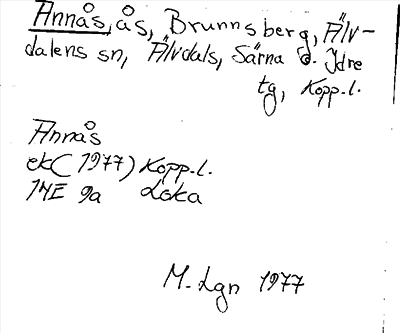 Annås, ås, Brunnsberg, Älv-
dalens sn, Älvdals, Särna o. Idre
tg, Kopp.l.
Annås
ek (1977) Kopp.l.
14E 9a Loka
M. Lgn 1977